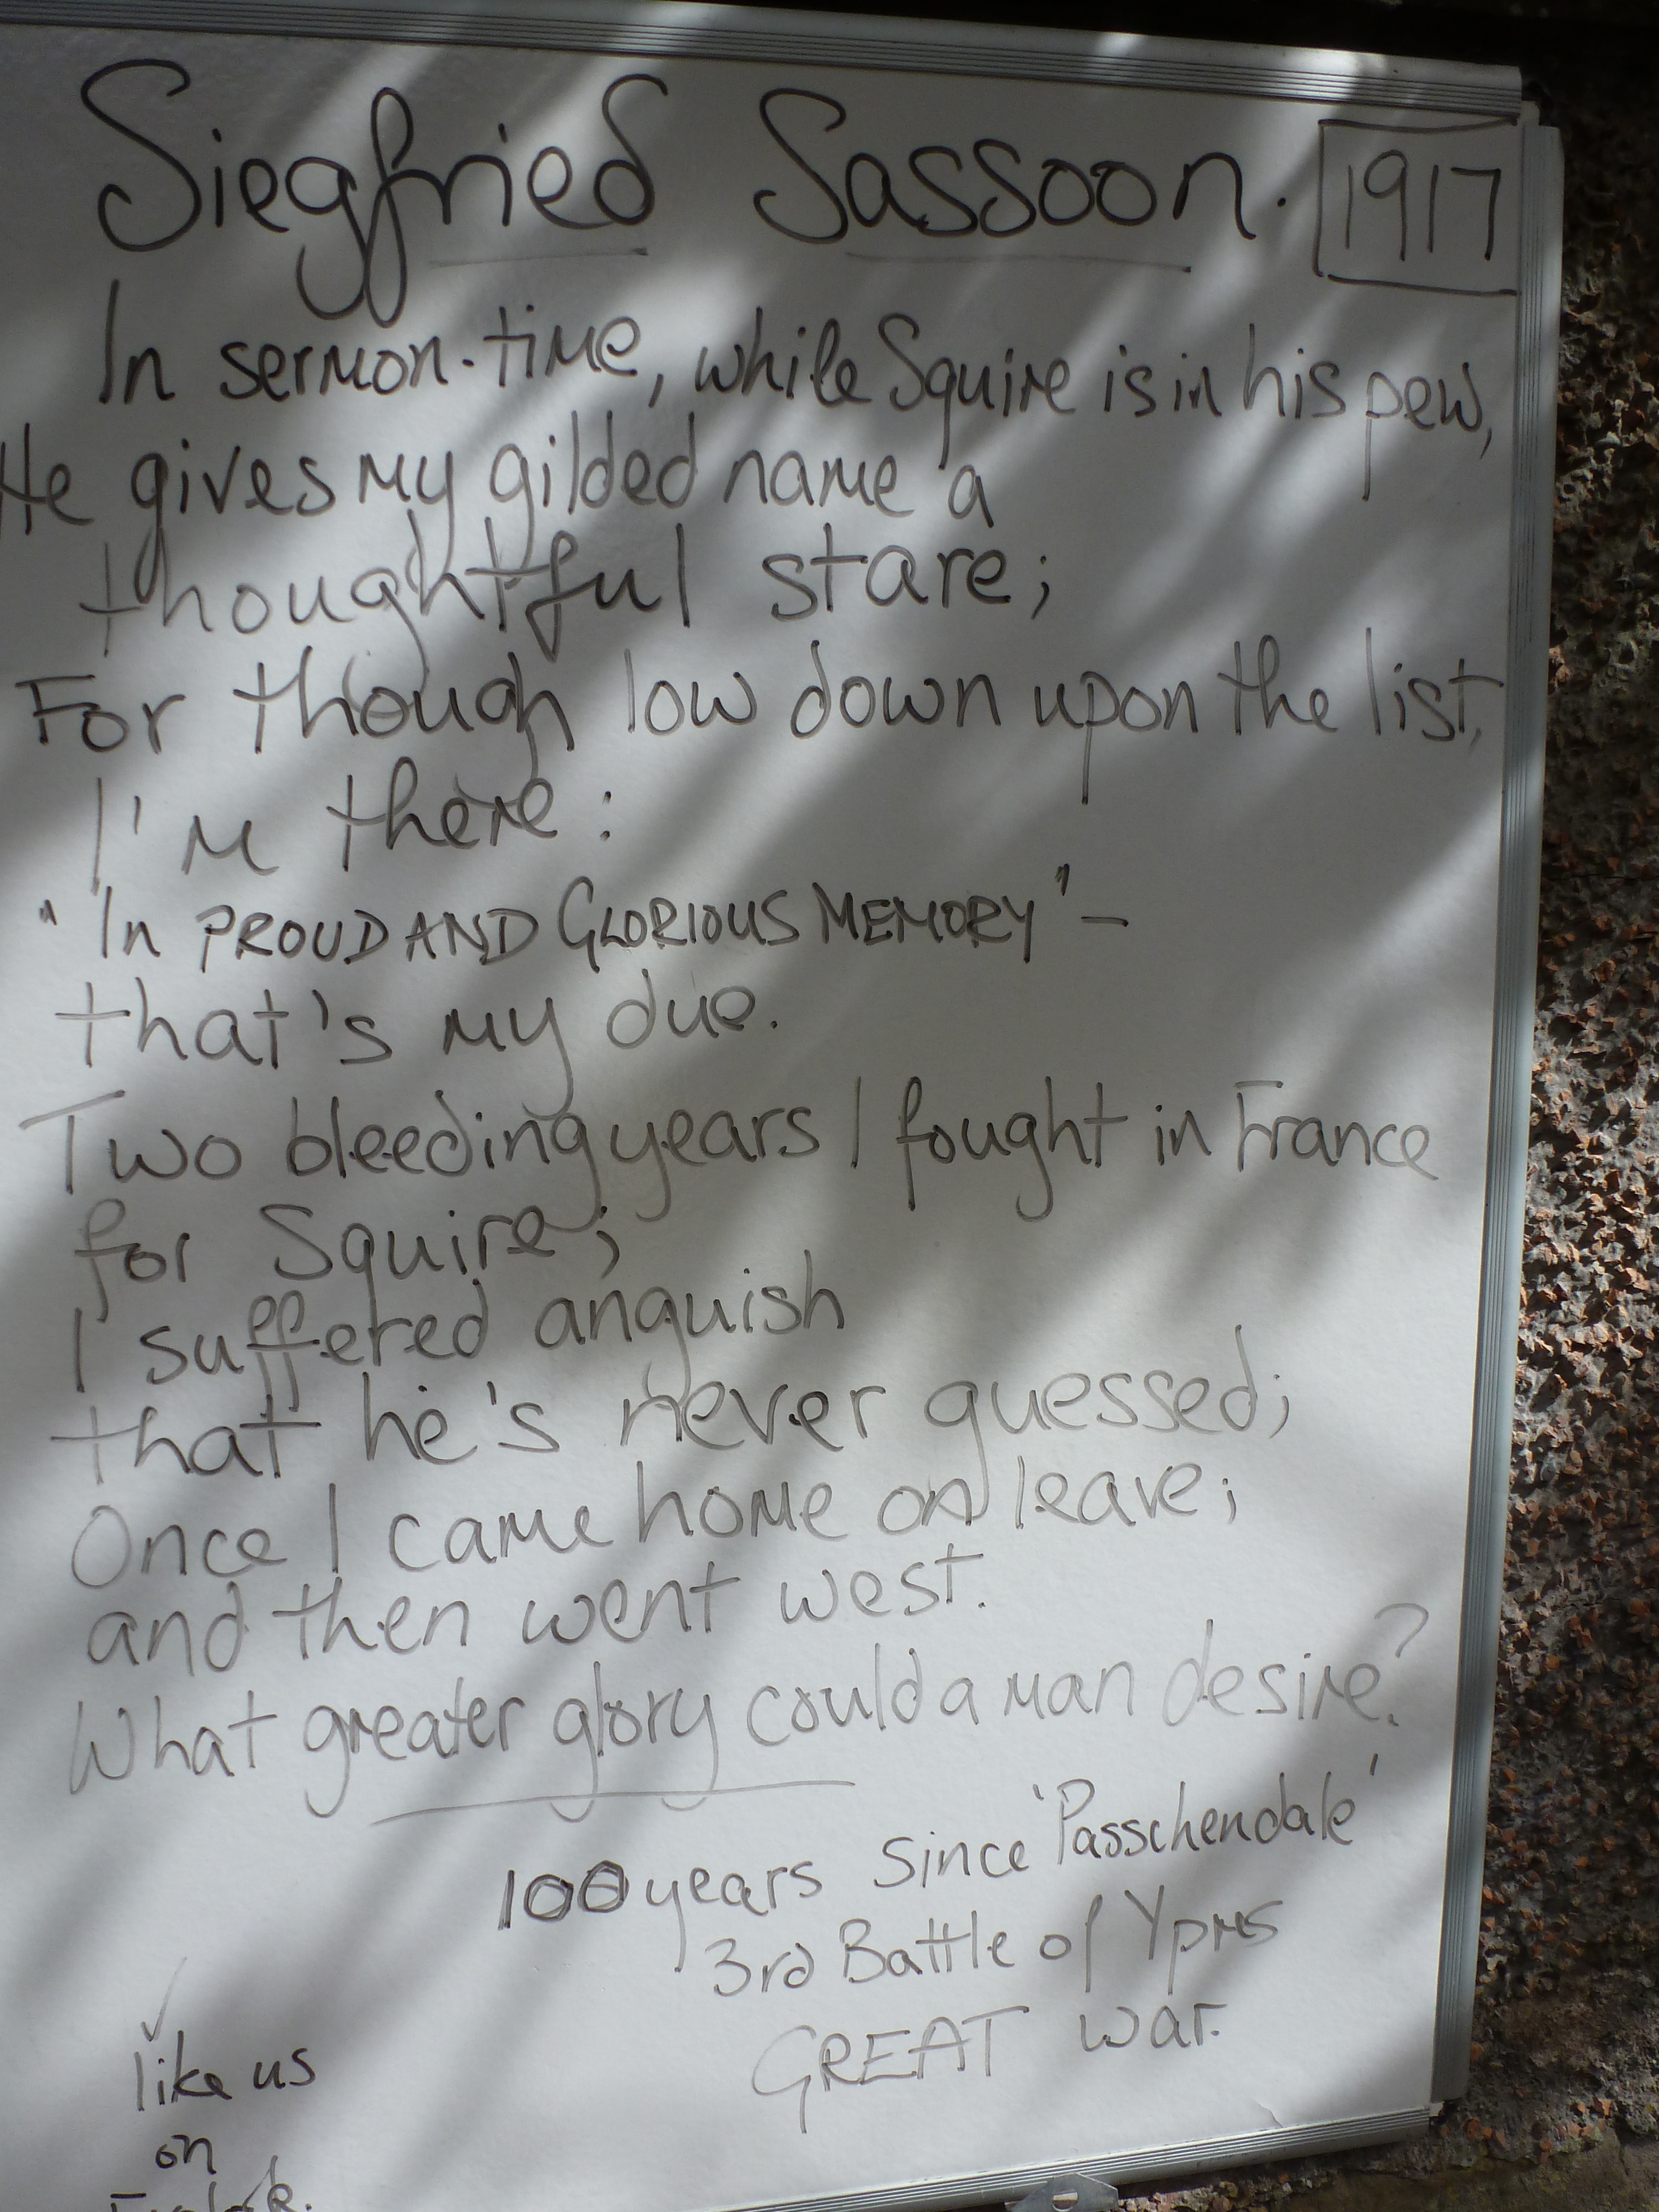 Siegfried Sassoon. 1917
In sermon-time, while Squire is in his pew,
He gives my gilded name a
thoughtful stare;
For though low down upon the list,
I'm there:
"In PROUD AND GLORIOUS MEMORY" –
that's my due.
Two bleeding years I fought in France
for Squire;
I suffered anguish
that he's never guessed;
Once I came home on leave;
and then went west.
What greater glory could a man desire?
100 years since 'Passchendale'
3rd Battle of Ypres
GREAT war.
like us
on